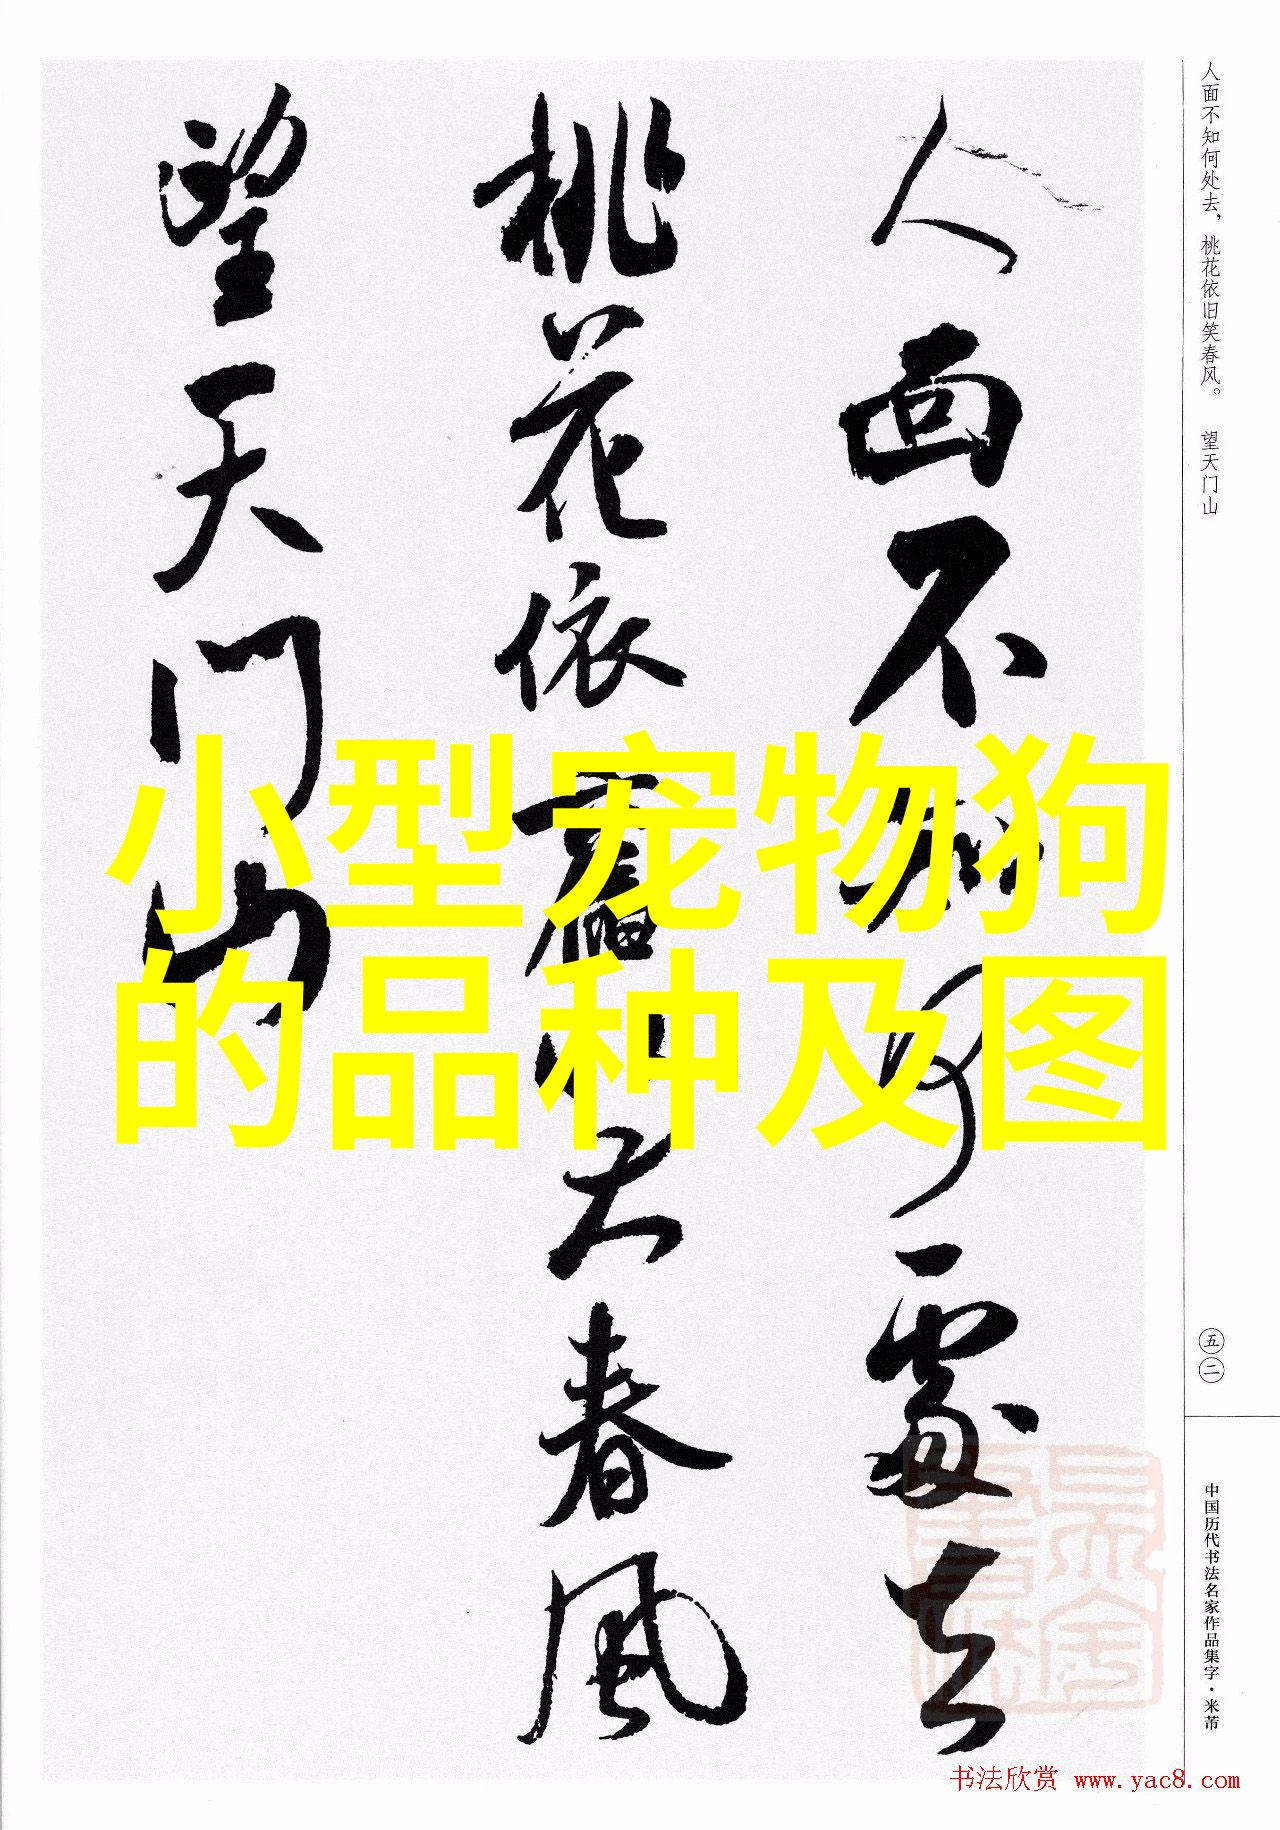 人面不知何處去
桃花依舊笑春風
望天门山
小型宠物狗
的品种及图
人面不知何处去，桃花依旧笑春风。 望天门山
五二
中国历代书法名家作品集字·米芾
书法欣赏 www.yac8.com